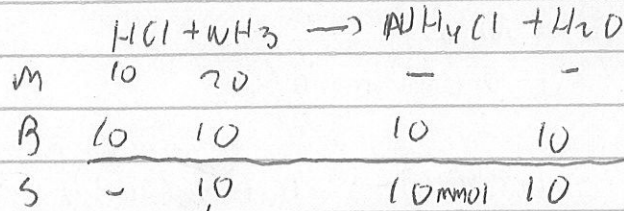 HCl + NH3 → NH4Cl + H2O
M 10 20 - -
B 10 10 10 10
S - 10 10 mmol 10